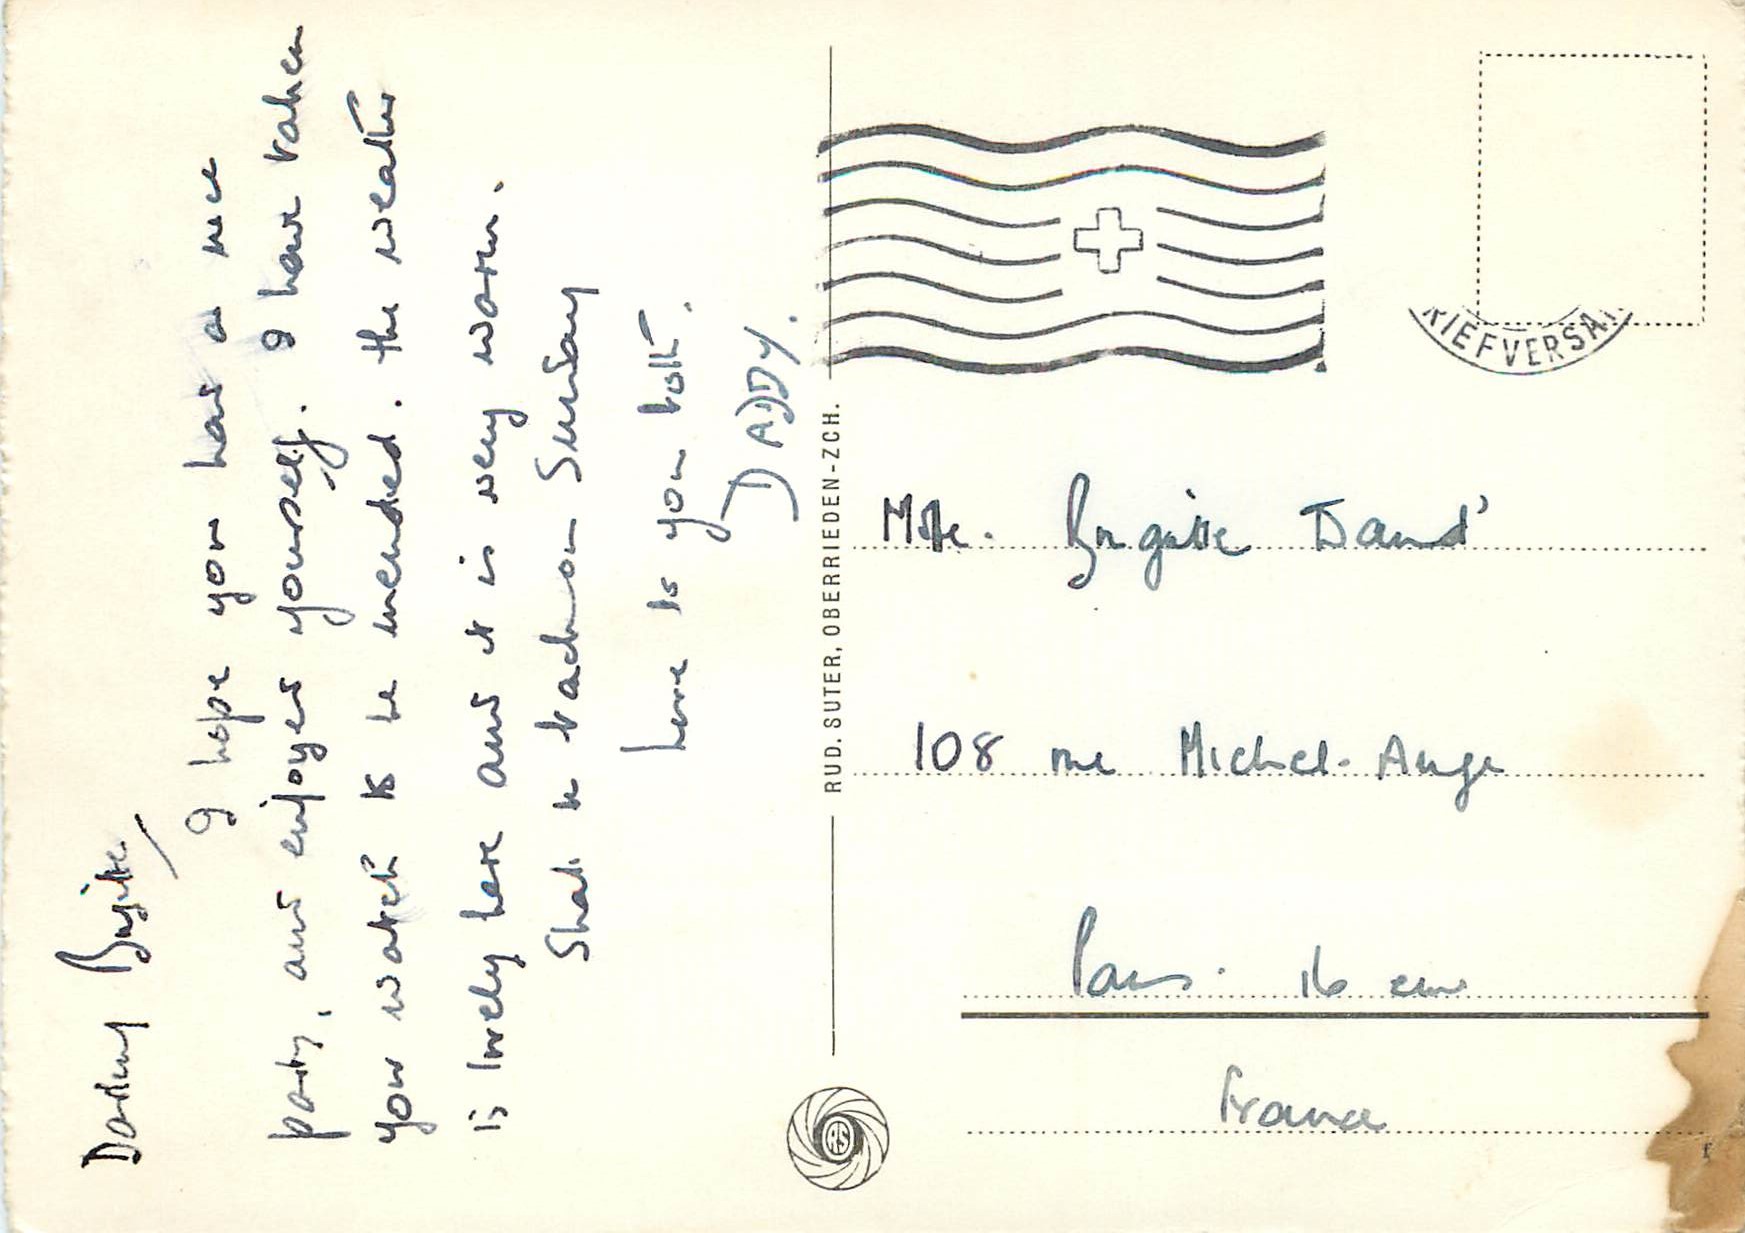 Darling Brigitte,
I hope you had a nice
party, and enjoyed yourself. I have taken
your watch to be mended. The weather
is lovely here and it is very warm.
Shall be back on Sunday
Love to you both.
DADDY.
RIEFVERSA
RUD. SUTER, OBERRIEDEN-ZCH.
RS
Mlle. Brigitte David
108 rue Michel-Ange
Paris. 16 eme
France